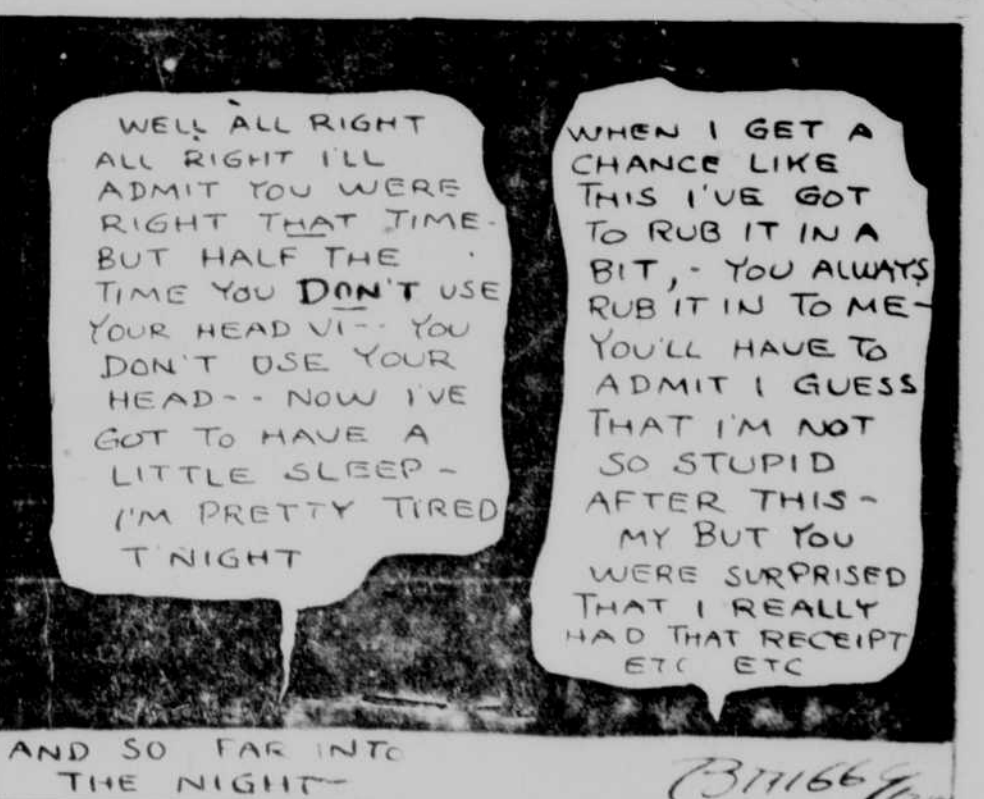 WELL ALL RIGHT
ALL RIGHT I'LL
ADMIT YOU WERE
RIGHT THAT TIME-
BUT HALF THE
TIME YOU DON'T USE
YOUR HEAD VI-- YOU
DON'T USE YOUR
HEAD-- NOW I'VE
GOT TO HAVE A
LITTLE SLEEP-
I'M PRETTY TIRED
T'NIGHT
WHEN I GET A
CHANCE LIKE
THIS I'VE GOT
TO RUB IT IN A
BIT,- YOU ALWAYS
RUB IT IN TO ME-
YOU'LL HAVE TO
ADMIT I GUESS
THAT I'M NOT
SO STUPID
AFTER THIS-
MY BUT YOU
WERE SURPRISED
THAT I REALLY
HAD THAT RECEIPT
ETC ETC
AND SO FAR INTO
THE NIGHT-
BRIGGS